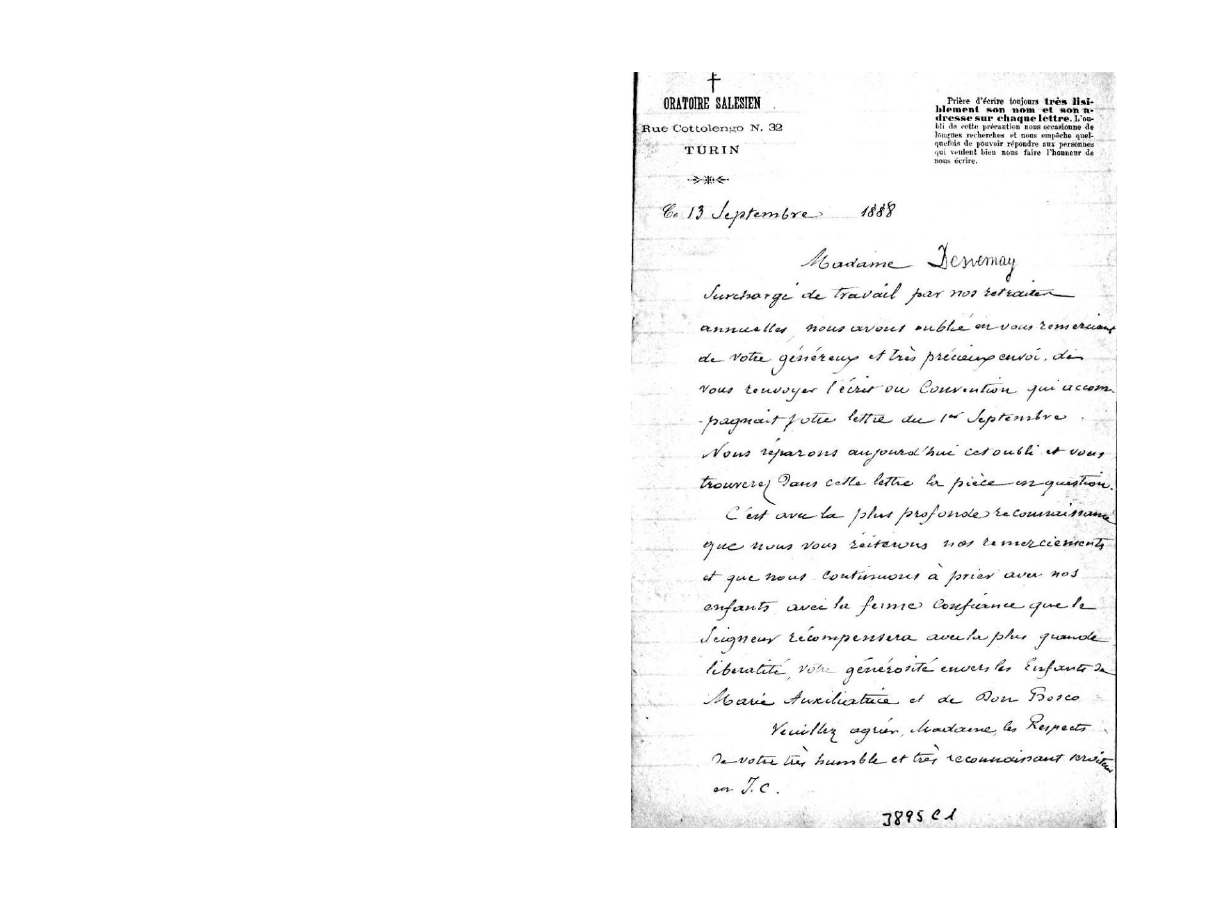 ORATOIRE SALESIEN
Rue Cottolengo N. 32
TURIN
Prière d'écrire toujours très lisi-
blement son nom et son a-
dresse sur chaque lettre. L'ou-
bli de cette précaution nous occasionne de
longues recherches et nous empêche quel-
quefois de pouvoir répondre aux personnes
qui veulent bien nous faire l'honneur de
nous écrire.
Ce 13 Septembre 1888
Madame
Surchargé de travail par nos retraites
annuelles, nous avons oublié en vous remerciant
de votre généreux et très précieux envoi, de
vous renvoyer l'écrit ou Convention qui accom-
-pagnait votre lettre du 1er Septembre.
Nous réparons aujourd'hui cet oubli et vous
trouverez dans cette lettre la pièce en question.
C'est avec la plus profonde reconnaissance
que nous vous réiterons nos remerciements
et que nous continuons à prier avec nos
enfants avec la ferme confiance que le
Seigneur récompensera avec la plus grande
liberalité, votre générosité envers les Enfants de
Marie Auxiliatrice et de Don Bosco
Veuillez agréer, Madame, les Respects
de votre très humble et très reconnaissant serviteur
en J. C.
3895 C1